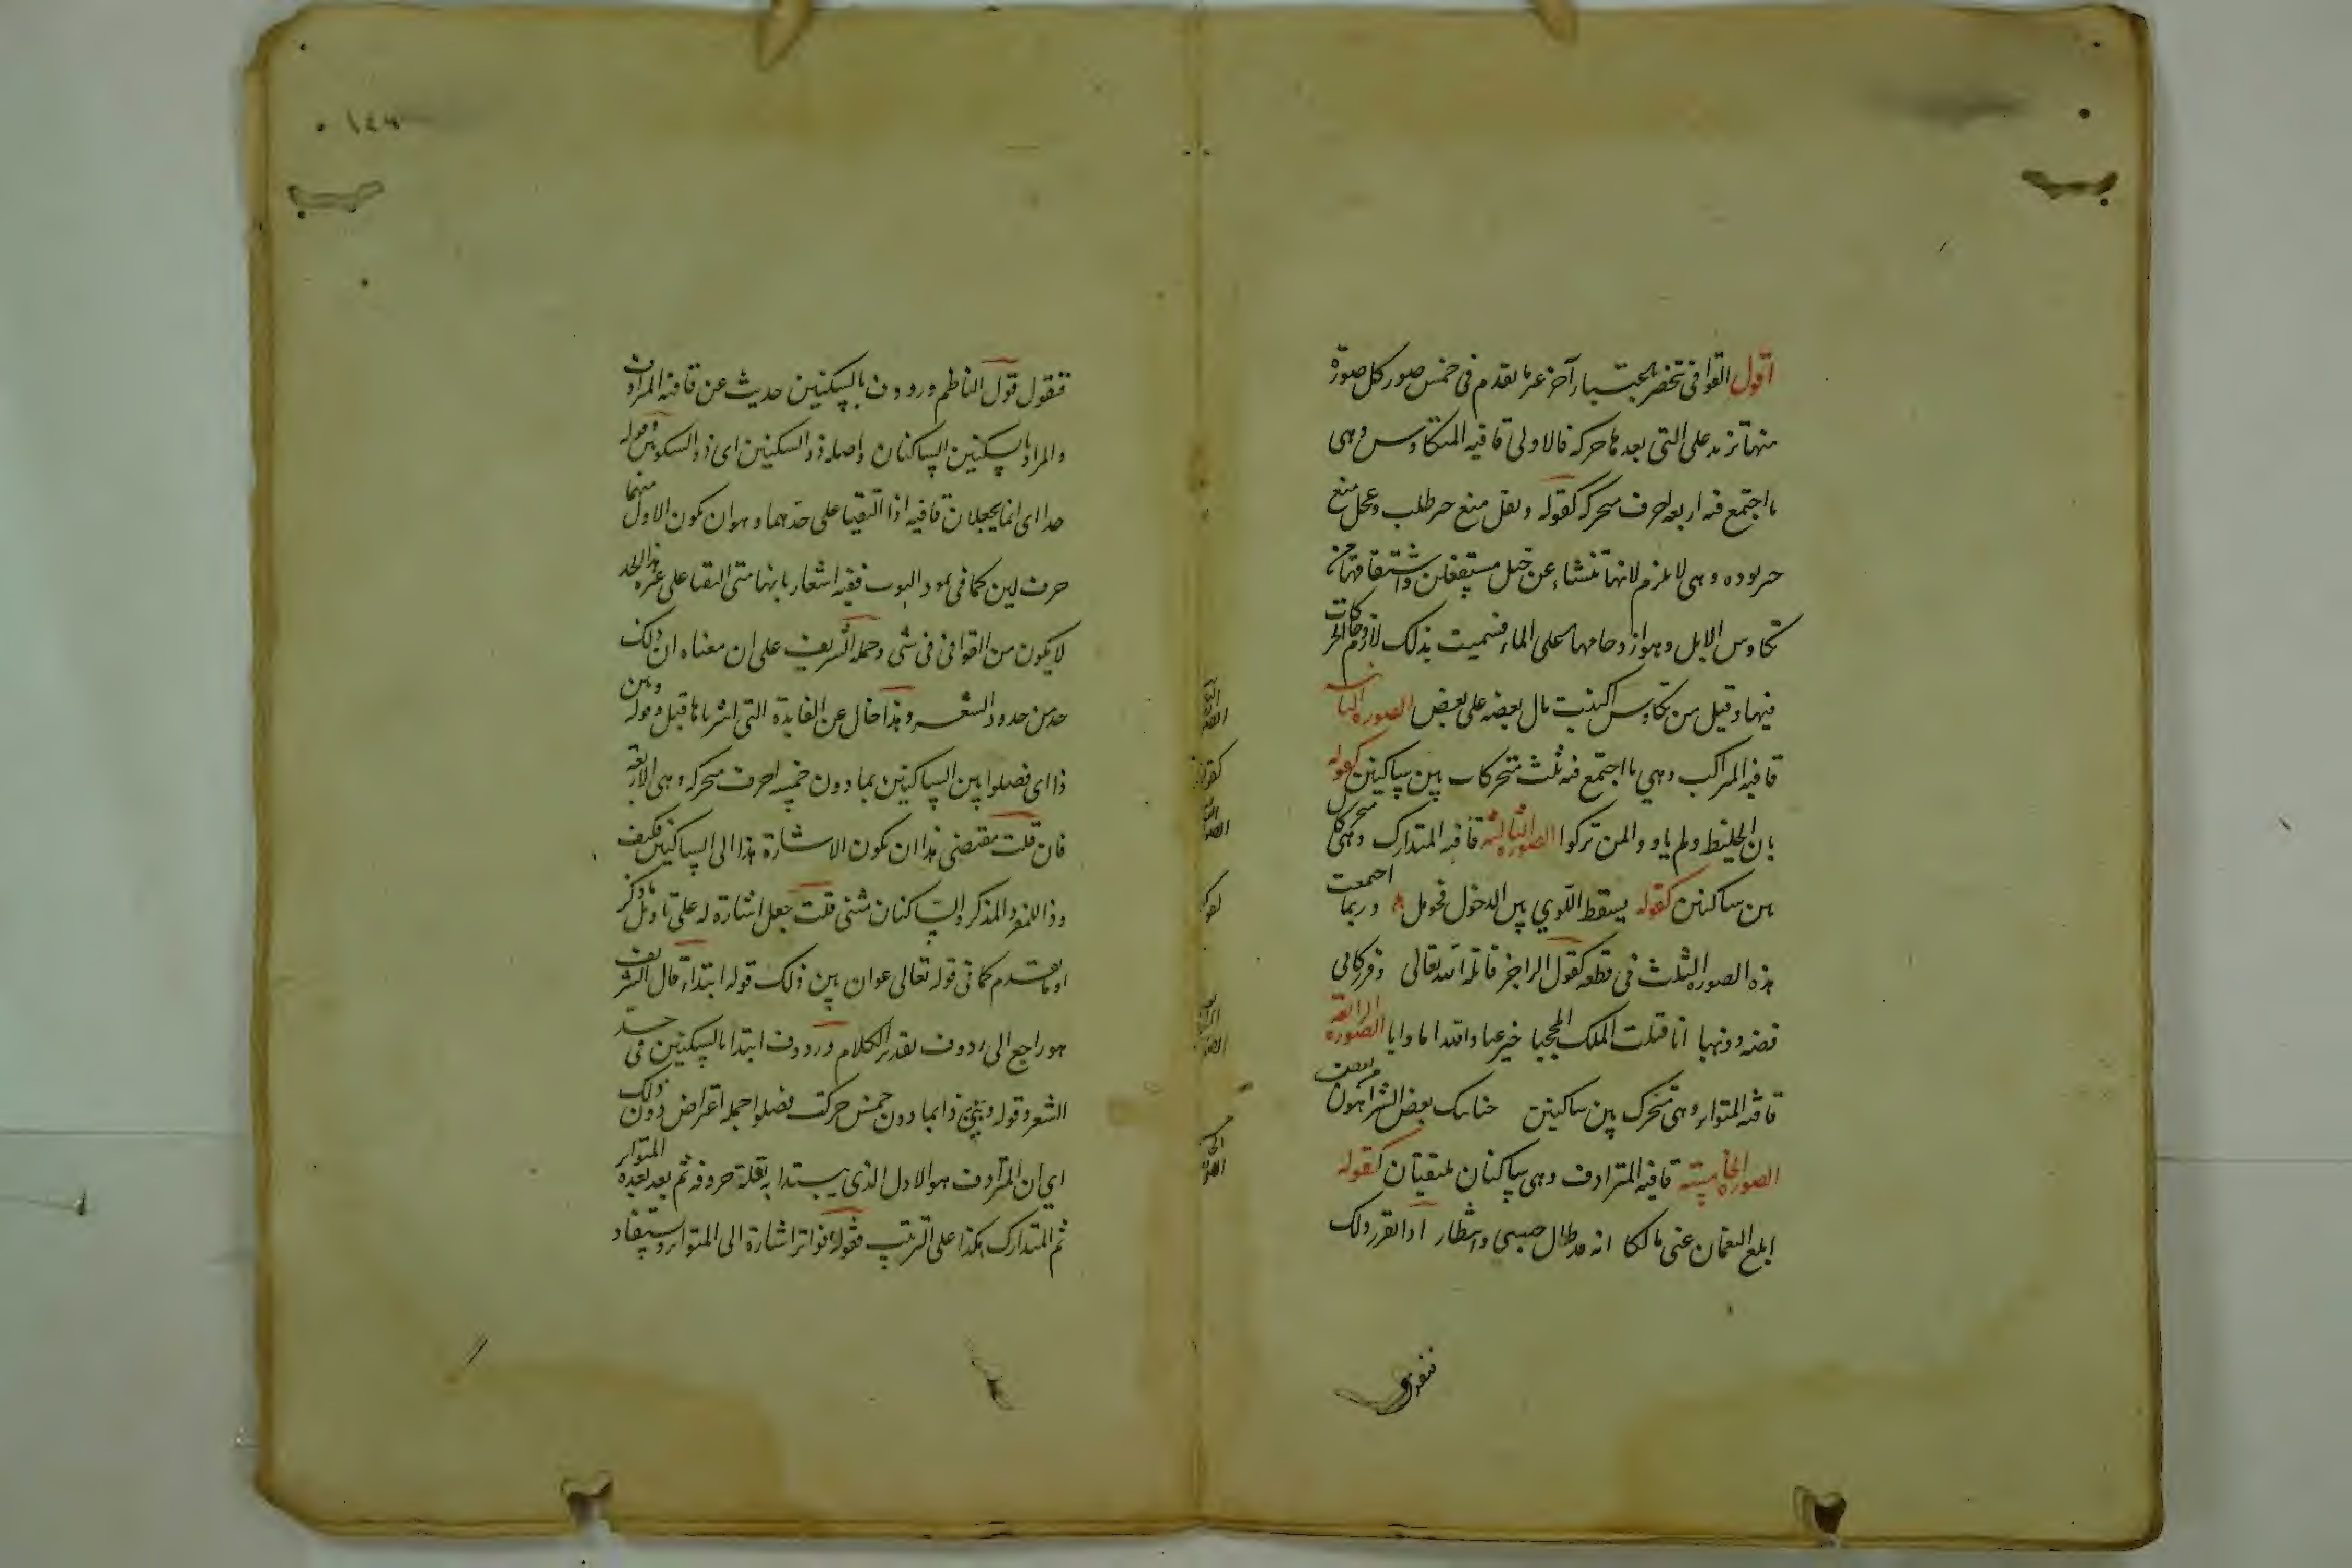 اقول القوافى تنحصر باعتبار آخر غير ما تقدم فى خمس صور كل صورة
منها تزيد على التى بعدها حركة فالاولى قافيه المتكاوس وهى
ما اجتمع فيه اربعة احرف متحركه كقوله وثقل منع خير طلب وعجل منع
خير توده وهى لا تلزم لانها تنشاء عن خبل مستفعلن واشتقاقها من
تكاوس الابل وهو ازدحامها على الماء فسميت بذلك لازدحام الحركات
فيها وقيل من تكاوس النبت مال بعضه على بعض الصورة الثانيه
قافيه المتراكب وهي ما اجتمع فيه ثلث متحركات بين ساكنين كقوله
بان الخليط ولم ياووا لمن تركوا الصورة الثالثه قافيه المتدارك وهى متحركان
بين ساكنين كقوله بسقط اللوي بين الدخول فحومل وربما اجتمعت
هذه الصورة الثلث فى قطعه كقول الراجز قاتله الله تعالى وقر ركابى
فضه وذهبا انا قتلت الملك المحجبا خير عباد الله اما وابا الصورة الرابعه
قافيه المتواتر وهى متحرك بين ساكنين حنانيك بعض الشر اهون من بعض
الصورة الخامسة قافيه المترادف وهى ساكنان ملتقيان كقوله
ابلغ النعمان عنى مالكا انه قد طال حبسي وانتظار اذا تقرر ذلك
فنقول
فنقول قول الناظم وردوف بالسكنين حديث عن قافيه المترادف
والمراد بالسكنين الساكنان واصله ذو السكنين اى ذو السكونين وقوله
حدا اى انما يجعلان قافيه اذا التقيا على حدهما وهو ان يكون الاول منهما
حرف لين كما فى عمود البوب ففيه اشعار بانهما متى التقيا على غير هذا الحد
لا يكون من القوافى فى شى وحمله الشريف على ان معناه ان ذلك
حد من حدود الشعر وهذا خال عن الفايدة التى اشرنا ها قبل وقوله وبين
ذا اى فصلوا بين الساكنين بما دون خمسه احرف متحركه وهى الاربعة
فان قلت مقتضى هذا ان يكون الاشارة بذا الى الساكنين فكيف
وذا للمفرد المذكر والساكنان مثنى قلت جعل اشارة له على تاويل ما ذكر
او ما تقدم كما فى قوله تعالى عوان بين ذلك قوله ابتداء قال الشريف
هو راجع الى ردوف تقدير الكلام وردوف ابتدا بالسكنين فى حد
الشعر وقوله وبين ذا بما دون خمس حركت فصلوا جمله اعتراض دون ذلك
اي ان المترادف هو الاول الذى يبتدا به لقلة حروفه ثم بعد بعده المتواتر
ثم المتدارك هكذا على الترتيب فقوله فواتر اشارة الى المتواتر ويستفاد